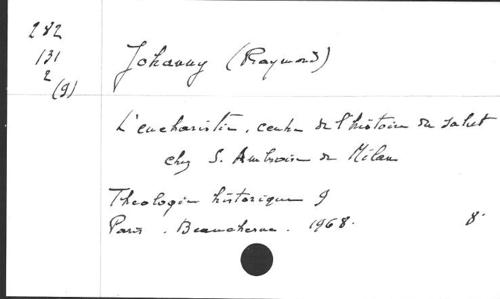 282
131
2
(9)
Johanny (Raymond)
L'eucharistie, centre de l'histoire du salut
chez S. Ambroise de Milan
Théologie historique 9
Paris. Beauchesne. 1968.
8°